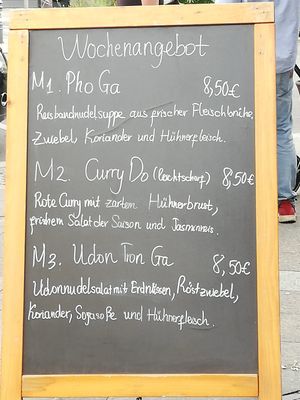 Wochenangebot
M1. Pho Ga 8,50€
Reisbandnudelsuppe aus frischer Fleischbrühe,
Zwiebel, Koriander und Hühnerfleisch.
M2. Curry Do (leicht scharf) 8,50€
Rote Curry mit zartem Hühnerbrust,
frischem Salat der Saison und Jasminreis.
M3. Udon Tron Ga 8,50€
Udonnudelsalat mit Erdnüssen, Röstzwiebel,
Koriander, Sojasoße und Hühnerfleisch.